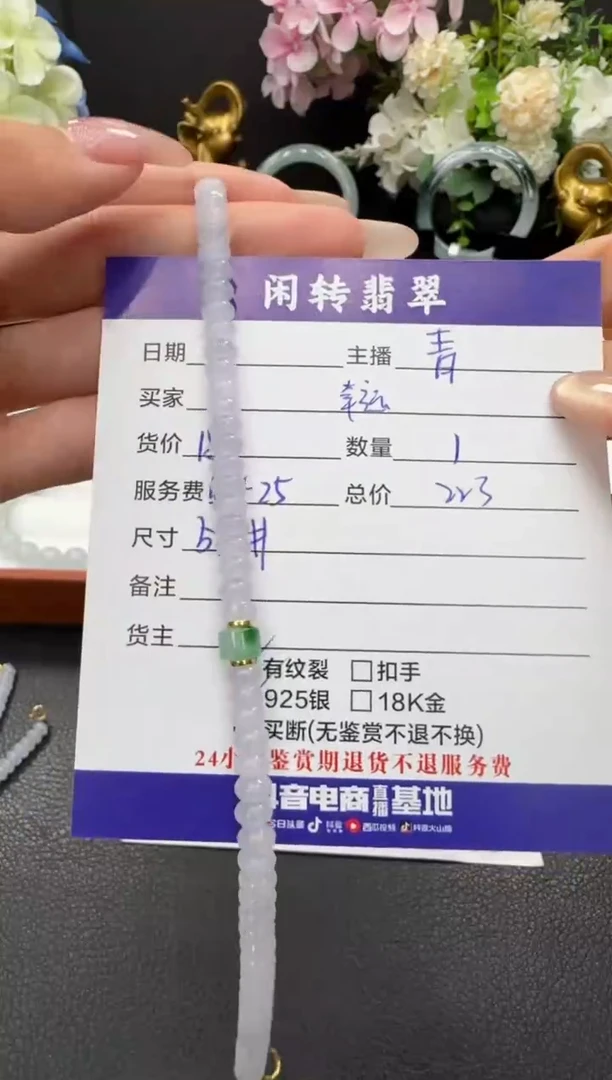 闲转翡翠
日期 主播 青
买家 幸运
货价 数量 1
服务费 25 总价 223
尺寸
备注
货主
有纹裂 □扣手
925银 □18K金
买断(无鉴赏不退不换)
24小 鉴赏期退货不退服务费
音电商直播基地
今日头条 抖音 西瓜视频 抖音火山版